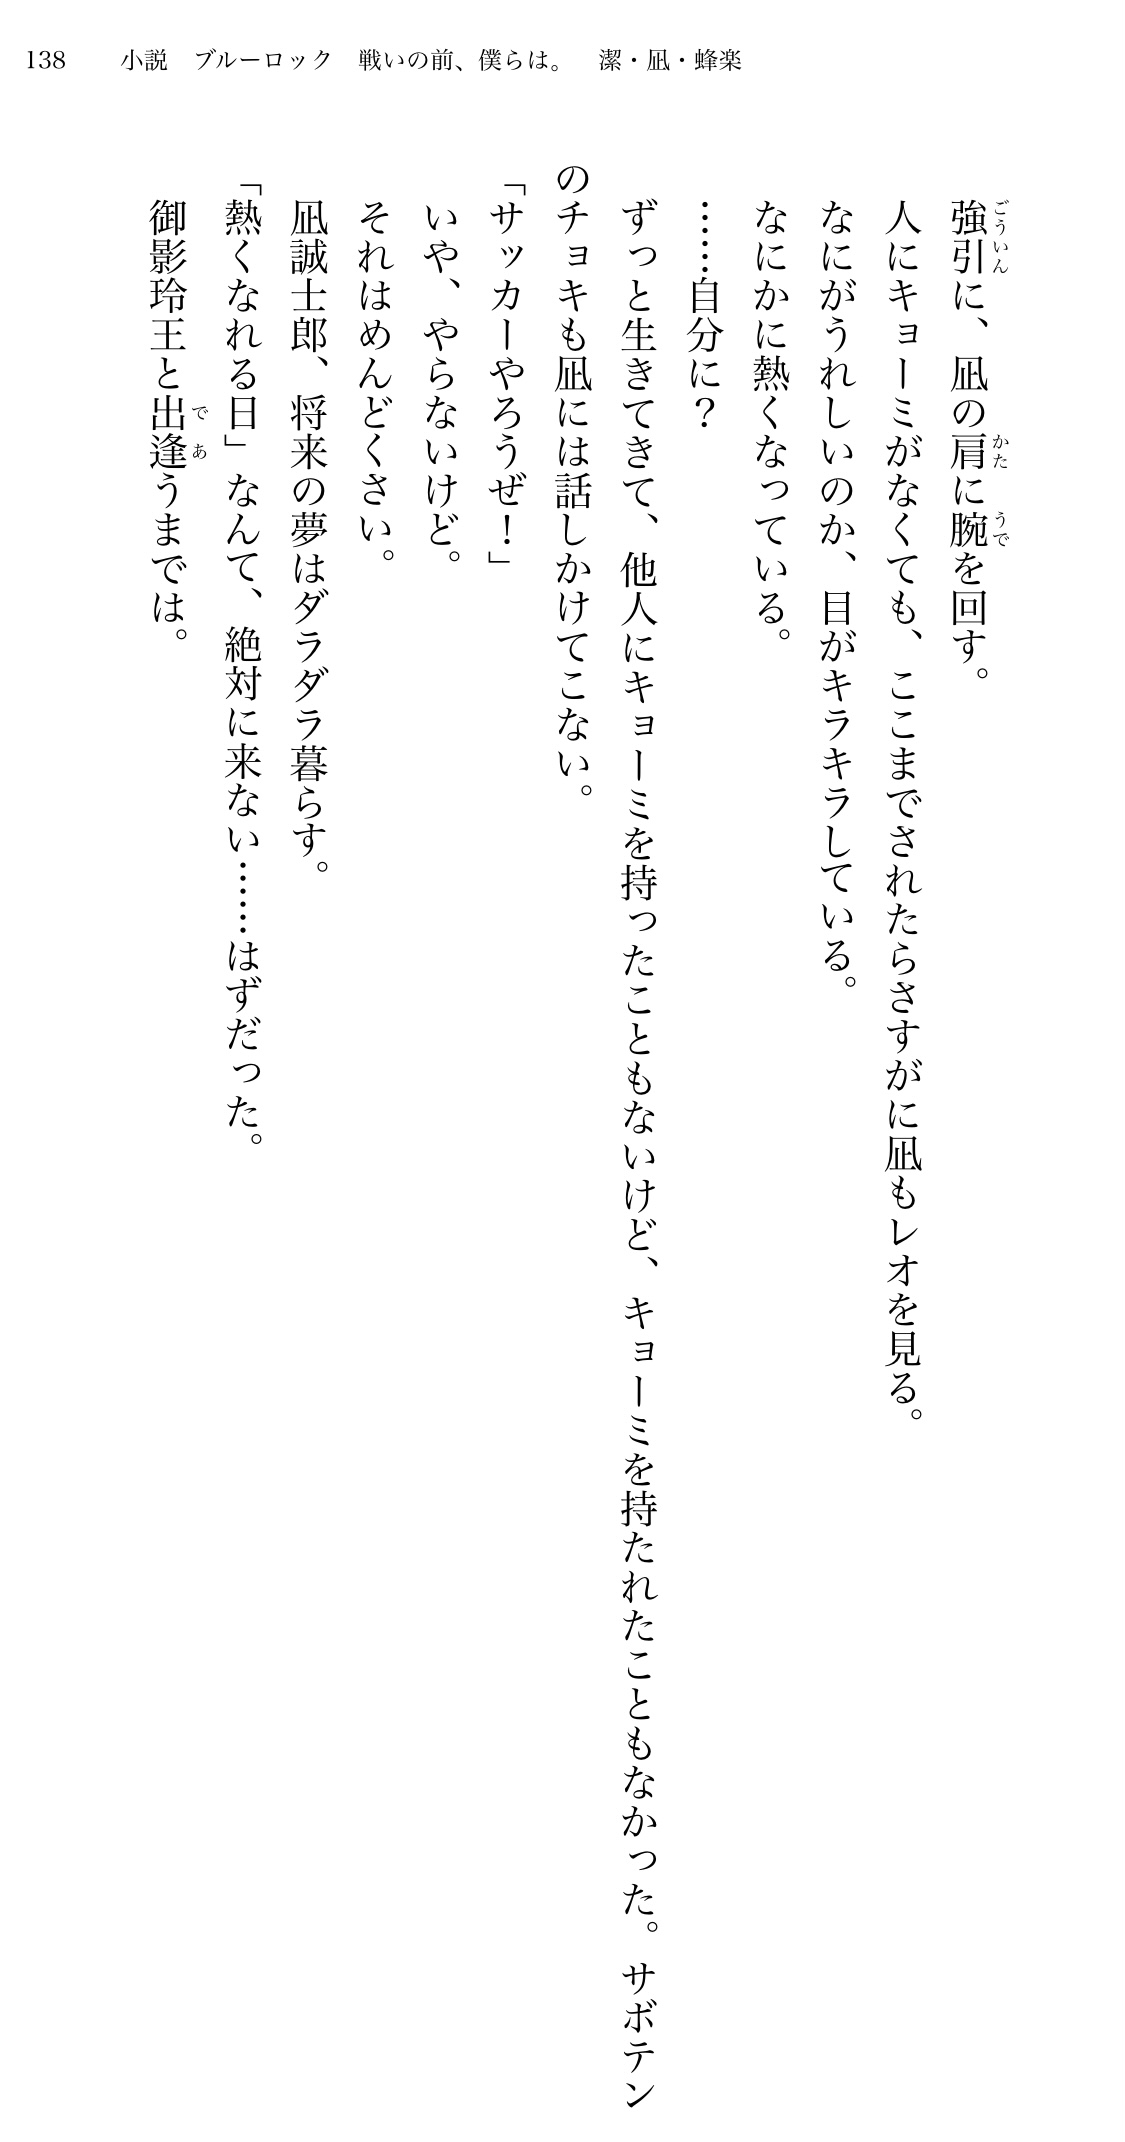 138　小説　ブルーロック　戦いの前、僕らは。　潔・凪・蜂楽
強引に、凪の肩に腕を回す。
人にキョーミがなくても、ここまでされたらさすがに凪もレオを見る。
なにがうれしいのか、目がキラキラしている。
なにかに熱くなっている。
……自分に？
ずっと生きてきて、他人にキョーミを持ったこともないけど、キョーミを持たれたこともなかった。サボテン
のチョキも凪には話しかけてこない。
「サッカーやろうぜ！」
いや、やらないけど。
それはめんどくさい。
凪誠士郎、将来の夢はダラダラ暮らす。
「熱くなれる日」なんて、絶対に来ない……はずだった。
御影玲王と出逢うまでは。